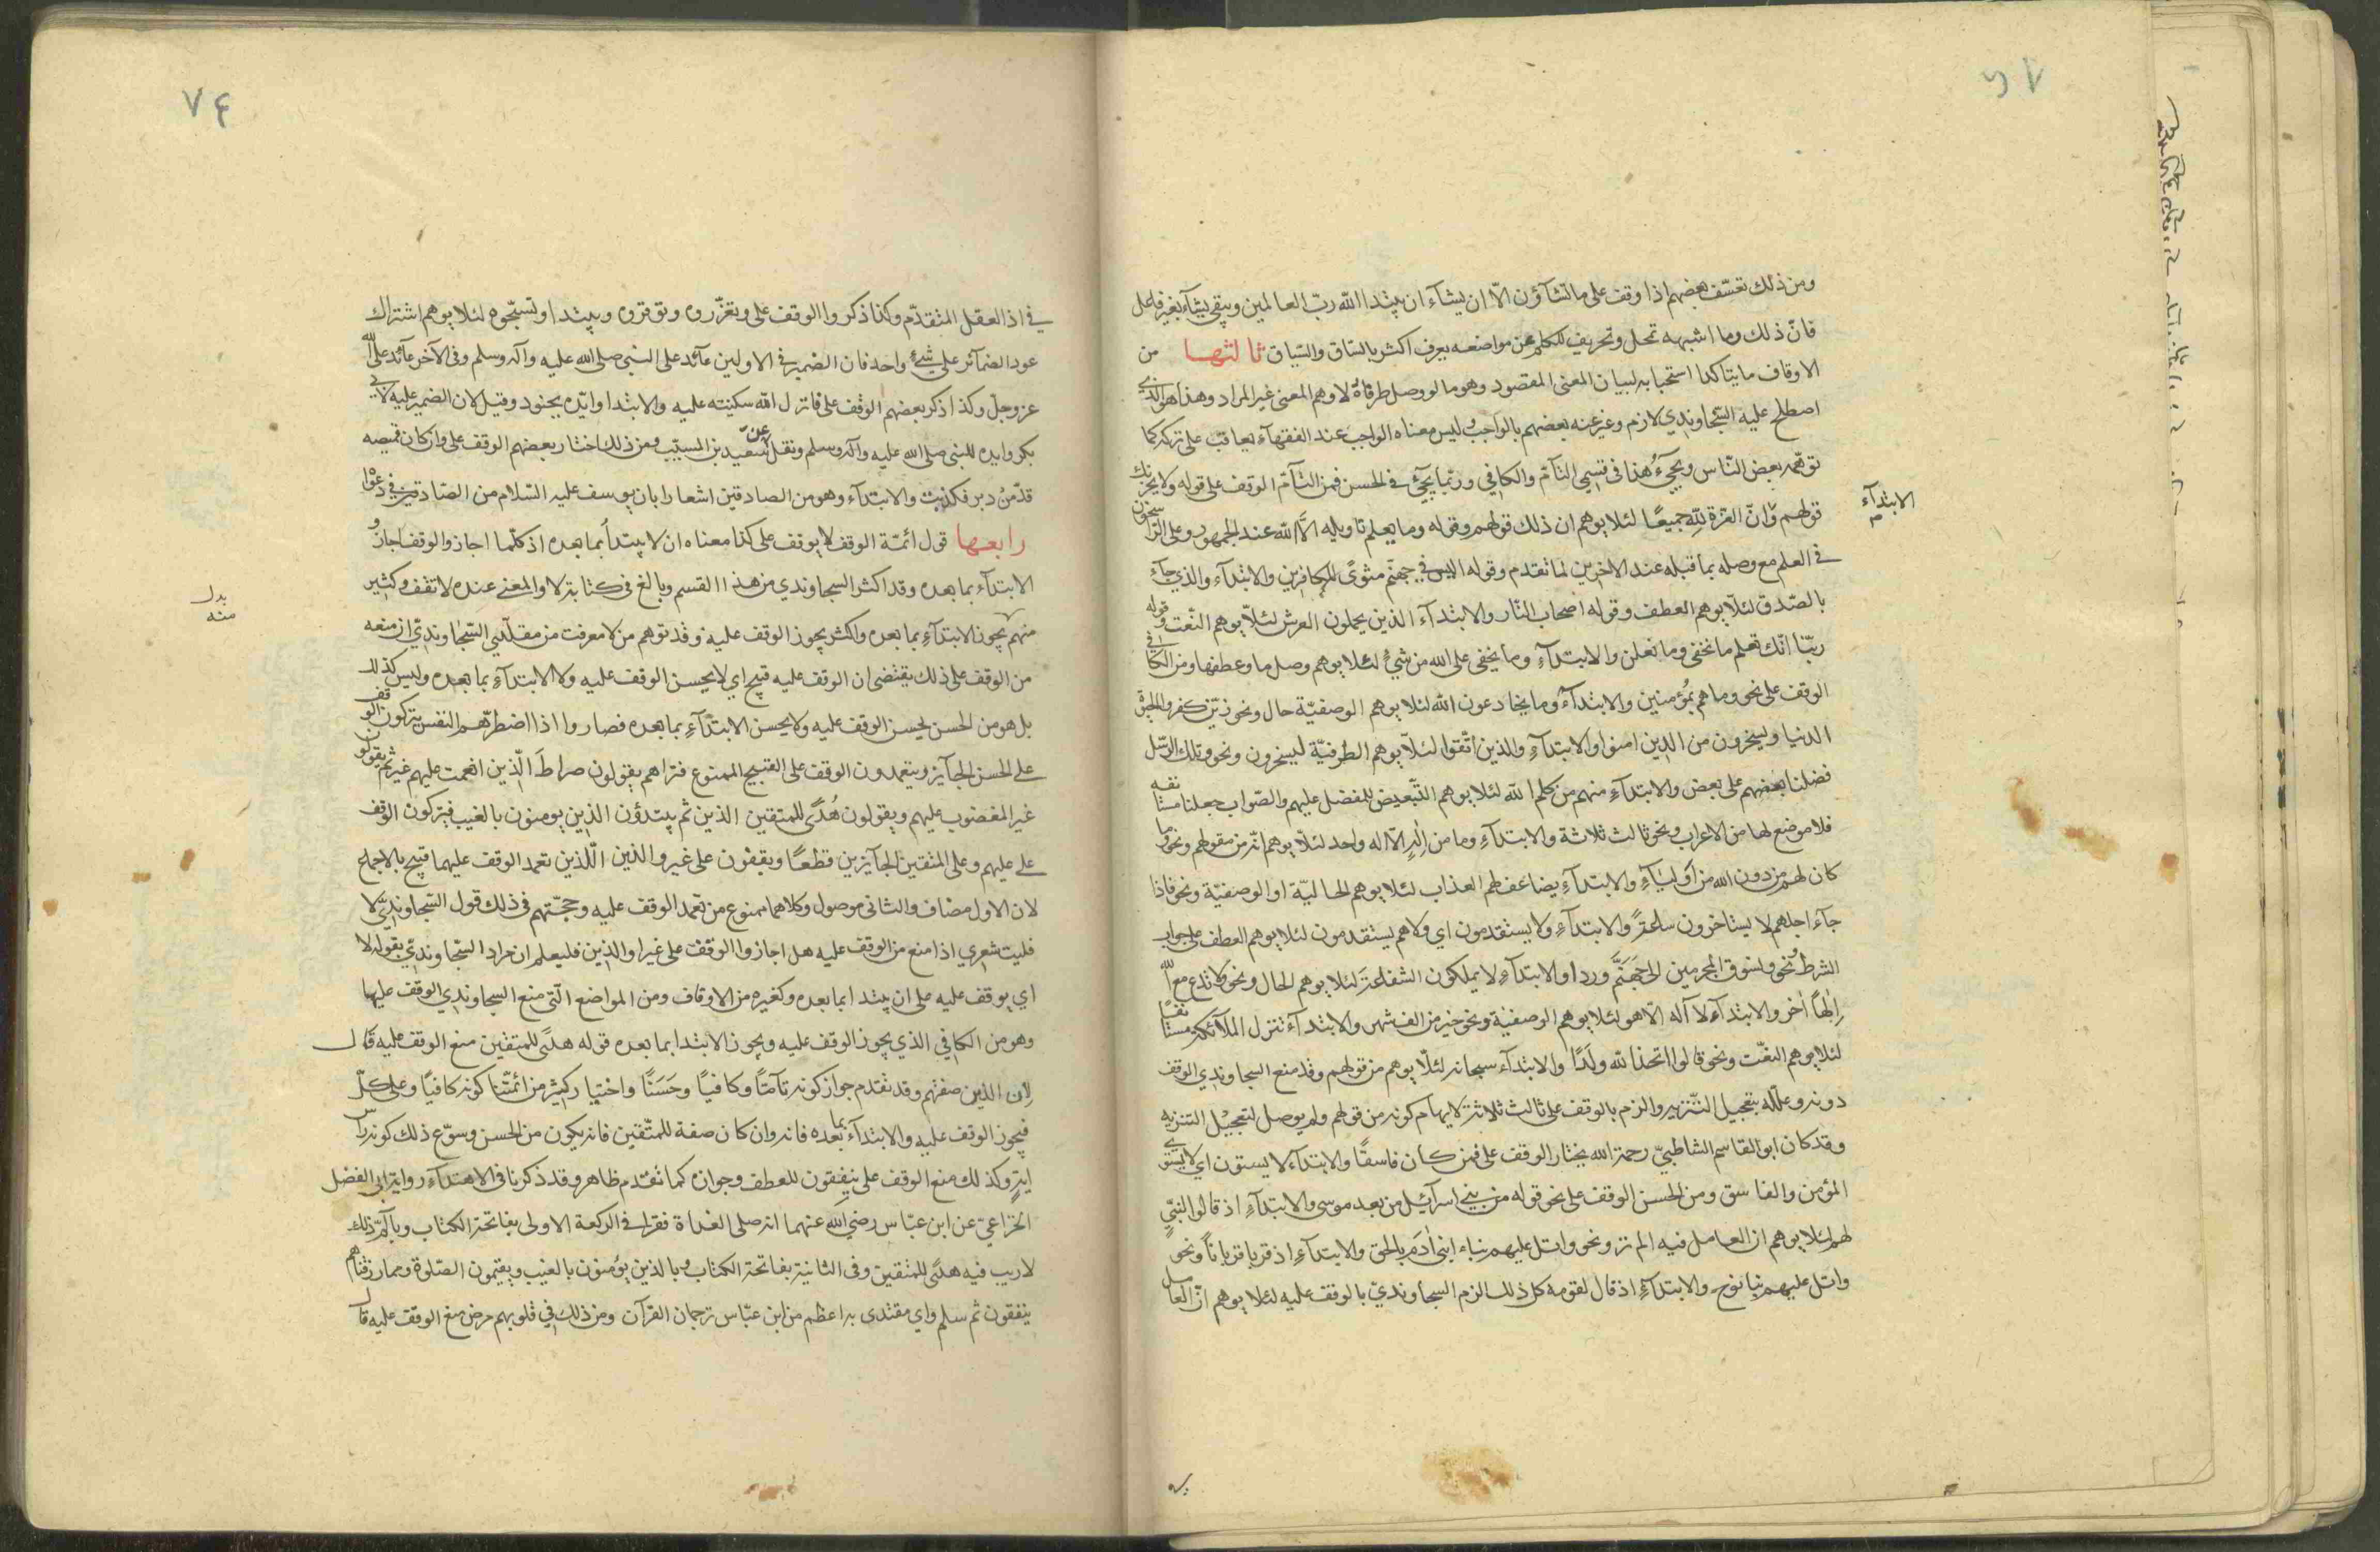 ومن ذلك تعسّف بعضهم اذا وقف على ما تشآؤن الّا ان يشاء ان يبتدا الله ربّ العالمين ويبقى يشآء بغير فاعل
فانّ ذلك وما اشبهه تحل وتحريف للكلم عن مواضعه يعرف اكثر بالسّاق والسّياق ثالثها من
الاوقاف ما يتاكد استحبابه لبيان المعنى المقصود وهو ما لو وصل طرفاه لاوهم المعنى غير المراد وهذا هو الذي
اصطلح عليه السّجاوندي لازم وغير عنه بعضهم بالواجب وليس معناه الواجب عند الفقهآء يعاقب على تركه كما
توهّمه بعض النّاس ويجيءُ هذا في قسمي التآمّ والكافي وربّما يجيء في الحسن فمن التآمّ الوقف على قوله ولا يحزنك
الابتدآء
قولهم وانّ العزّة لله جميعًا لئلا يوهم ان ذلك قولهم وقوله وما يعلم تاويله الّا الله عند الجمهور وعلى الرّاسخون
في العلم مع وصله بما قبله عند الاخرين لما تقدم وقوله اليس في جهنّم مثوًى للكافرين والابتدآء والذي جآء
بالصّدق لئلّا يوهم العطف وقوله اصحاب النّار والابتدآء الذين يحملون العرش لئلّا يوهم النّعت وقوله
ربّنا انّك تعلم ما نخفى وما نعلن والابتدآء وما يخفى على الله من شيءٍ لئلا يوهم وصل ما وعطفها ومن الكافي
الوقف على نحو وما هم بمُؤمنين والابتدآء وما يخادعون الله لئلا يوهم الوصفيّة حال ونحو زيّن كفروا الحيوة
الدنيا ويسخرون من الذين امنوا والابتدآء والذين اتّقوا لئلّا يوهم الطرفيّة ليسخرون ونحو وتلك الرّسل
فضلنا بعضهم على بعض والابتدآء منهم من يكلم الله لئلا يوهم التّبعيض للمفضل عليهم والصّواب جعلنا مستانفه
فلا موضع لها من الاعراب ونحو ثالث ثلاثة والابتدآء وما من الٰهٍ الّا اله واحد لئلّا يوهم انّه من مقولهم ونحو وما
كان لهم من دون الله من أوليآء والابتدآء يضاعف لهم العذاب لئلا يوهم الحاليّة او الوصفيّة ونحو فاذا
جآء اجلهم لا يستاخرون ساعةً والابتدآء ولا يستقدمون اي ولا هم يستقدمون لئلا يوهم العطف على جواب
الشرط ونحو ونسوق المجرمين الى جَهَنَّم وردا والابتدآء لا يملكون الشفاعَة لئلا يوهم الحال ونحو ولا تدع مع الله
اِلٰهًا اٰخر والابتدآء لا آله الّا هو لئلا يوهم الوصفيّة ونحو خير من الف شهر والابتدآء تنزل الملآئكة مستانفًا
لئلا يوهم النعت ونحو قالوا اتخذ الله ولَدًا والابتدآء سبحانه لئلّا يوهم من قولهم وقد منع السجاوندي الوقف
دونه وعلّله بتعجيل التّنزيه والزم بالوقف على ثالث ثلاثة لايهام كونه من قولهم ولم يوصل لتعجيل التنزيه
وقد كان ابو القاسم الشاطبيّ رحمة الله يختار الوقف على افمن كان فاسقًا والابتدآء لا يستون اي لا يستوي
المؤمن والفاسق ومن الحسن الوقف على نحو قوله من بني اسرآئيل من بعد موسى والابتدآءِ اذ قالوا لنبيٍّ
لهم لئلا يوهم ان العامل فيه الم تر ونحو واتل عليهم نباء ابنى اٰدَم بالحق والابتدآءِ اذ قربا قرباناً ونحو
واتل عليهم نبا نوح والابتدآءِ اذ قال لقومه كل ذلك الزم السجاونديّ بالوقف عليه لئلا يوهم انّ العامل
٧۴
في اذ العقل المتقدّم وكذا ذكروا الوقف على وتعزّروه وتوقروه ويبتدا وتسبّحوه لئلا يوهم اشتراك
عود الضمآئر على شيءٍ واحد فان الضمير في الاولين عآئد على النبى صلى الله عليه وآله وسلم وفى الآخر عآئد على الله
عز وجل وكذا ذكر بعضهم الوقف على فانزل الله سكينته عليه والابتدا وايّده بجنود وقيل لان الضمير عليه لابي
بكر وايده للنبى صلى الله عليه وآله وسلم ونقل عن سعيد بن المسيّب ومن ذلك اختار بعضهم الوقف على وان كان قميصه
قدّ منْ دبر فكذبت والابتدآء وهو من الصادقين اشعارا بان يوسف عليه السّلام من الصّادقين في دعواه
رابعها قول ائمّة الوقف لا يوقف على كذا معناه ان لا يبتدأ بما بعده اذ كلّما اجازوا الوقف اجازوا
الابتدآء بما بعده وقد اكثر السجاوندي من هذا القسم وبالغ في كتابته لا والمعنى عنده لا تقف وكثير
بدل منه
منهم يجوز الابتدآءِ بما بعده واكثره يجوز الوقف عليه وقد توهم من لا معرفت من مقلّدي السّجاونديّ ان منعه
من الوقف على ذلك يقتضى ان الوقف عليه قبيح اي لا يحسن الوقف عليه ولا الابتدآءِ بما بعده وليس كذلك
بل هو من الحسن يحسن الوقف عليه ولا يحسن الابتدآءِ بما بعده فصاروا اذا اضطرّهم النفس يتركون الوقف
على الحسن الجآيز ويتعمدون الوقف على القبيح الممنوع فتراهم يقولون صراطَ الّذين انعمت عليهم غير ثم يقولون
غير المغضوب عليهم ويقولون هُدًى للمتقين الذين ثم يبتدؤن الذين يومنون بالغيب فيتركون الوقف
على عليهم وعلى المتقين الجآيزين قطعًا ويقفون على غير والذين اللّذين تعمد الوقف عليهما قبيح بالاجماع
لان الاول مضاف والثانى موصول وكلاهما ممنوع من تعمد الوقف عليه وحجّتهم في ذلك قول السّجاونديّ لا
فليت شعري اذا منع من الوقف عليه هل اجازوا الوقف على غير او الذين فليعلم ان مراد السّجاونديّ بقوله لا
اي يوقف عليه على ان يبتدا بما بعده وكغيره من الاوقاف ومن المواضع الّتى منع السجاوندي الوقف عليها
وهو من الكافي الذي يجوز الوقف عليه ويجوز الابتدا بما بعده قوله هدًى للمتقين منع الوقف عليه قال
لان الذين صفتهم وقد تقدم جواز كونه تآمّاً وكافيًا وحَسَنًا واختيار كثير من ائمّتنا كونه كافيًا وعلى كلّ
فيجوز الوقف عليه والابتدآء بما بعده فانه وان كان صفة للمتّقين فانه يكون من الحسن وسوّغ ذلك كونه راس
ايةٍ وكذلك منع الوقف على ينفقون للعطف وجوازه كما تقدم ظاهر وقد ذكرنا فى الاهتداء رواية ابى الفضل
الخزاعيّ عن ابن عبّاس رضي الله عنهما انه صلى الغداة فقرا في الركعة الاولى بفاتحة الكتاب وبالمّ ذلك
لا ريب فيه هدًى للمتقين وفى الثانية بفاتحة الكتاب وبالذين يؤمنون بالغيب ويقيمون الصّلوة ومما رزقناهم
ينفقون ثم سلم واي مقتدى به اعظم من ابن عبّاس ترجمان القرآن ومن ذلك في قلوبهم مرض منع الوقف عليه قال